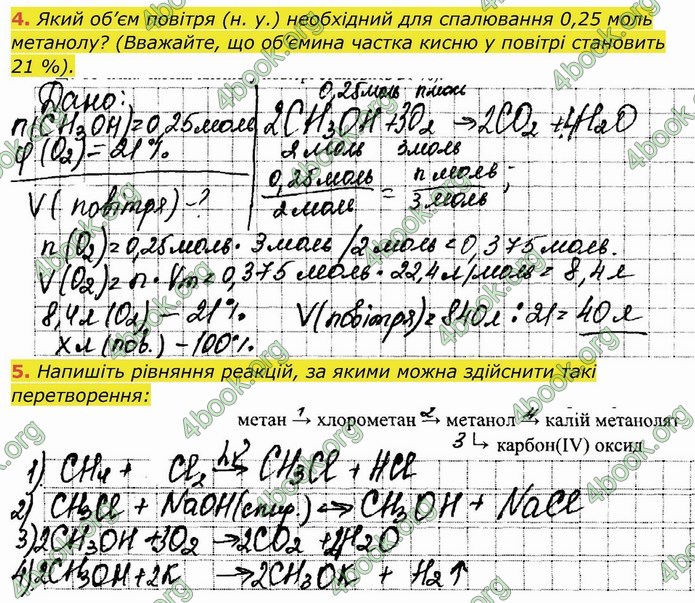 4. Який об’єм повітря (н. у.) необхідний для спалювання 0,25 моль
метанолу? (Вважайте, що об’ємина частка кисню у повітрі становить
21 %).
Дано:
n(CH₃OH)=0,25моль
φ(O₂)=21%
V(повітря)-?
0,25моль nмоль
2CH₃OH+3O₂ →2CO₂ +4H₂O
2моль 3моль
0,25моль/2моль = nмоль/3моль;
n(O₂)=0,25моль·3моль/2моль=0,375моль.
V(O₂)=n·Vm=0,375моль·22,4л/моль=8,4л
8,4л(O₂) – 21% V(повітря)=840л:21=40л
xл(пов.) –100%.
5. Напишіть рівняння реакцій, за якими можна здійснити такі
перетворення:
метан 1→ хлорометан 2→ метанол 4→ калій метанолят
3↳ карбон(IV) оксид
1) CH₄ + Cl₂ hν→ CH₃Cl + HCl
2) CH₃Cl + NaOH(спир.)⇔ CH₃OH + NaCl
3)2CH₃OH+3O₂ →2CO₂ +4H₂O
4)2CH₃OH+2K →2CH₃OK + H₂↑
4book.org